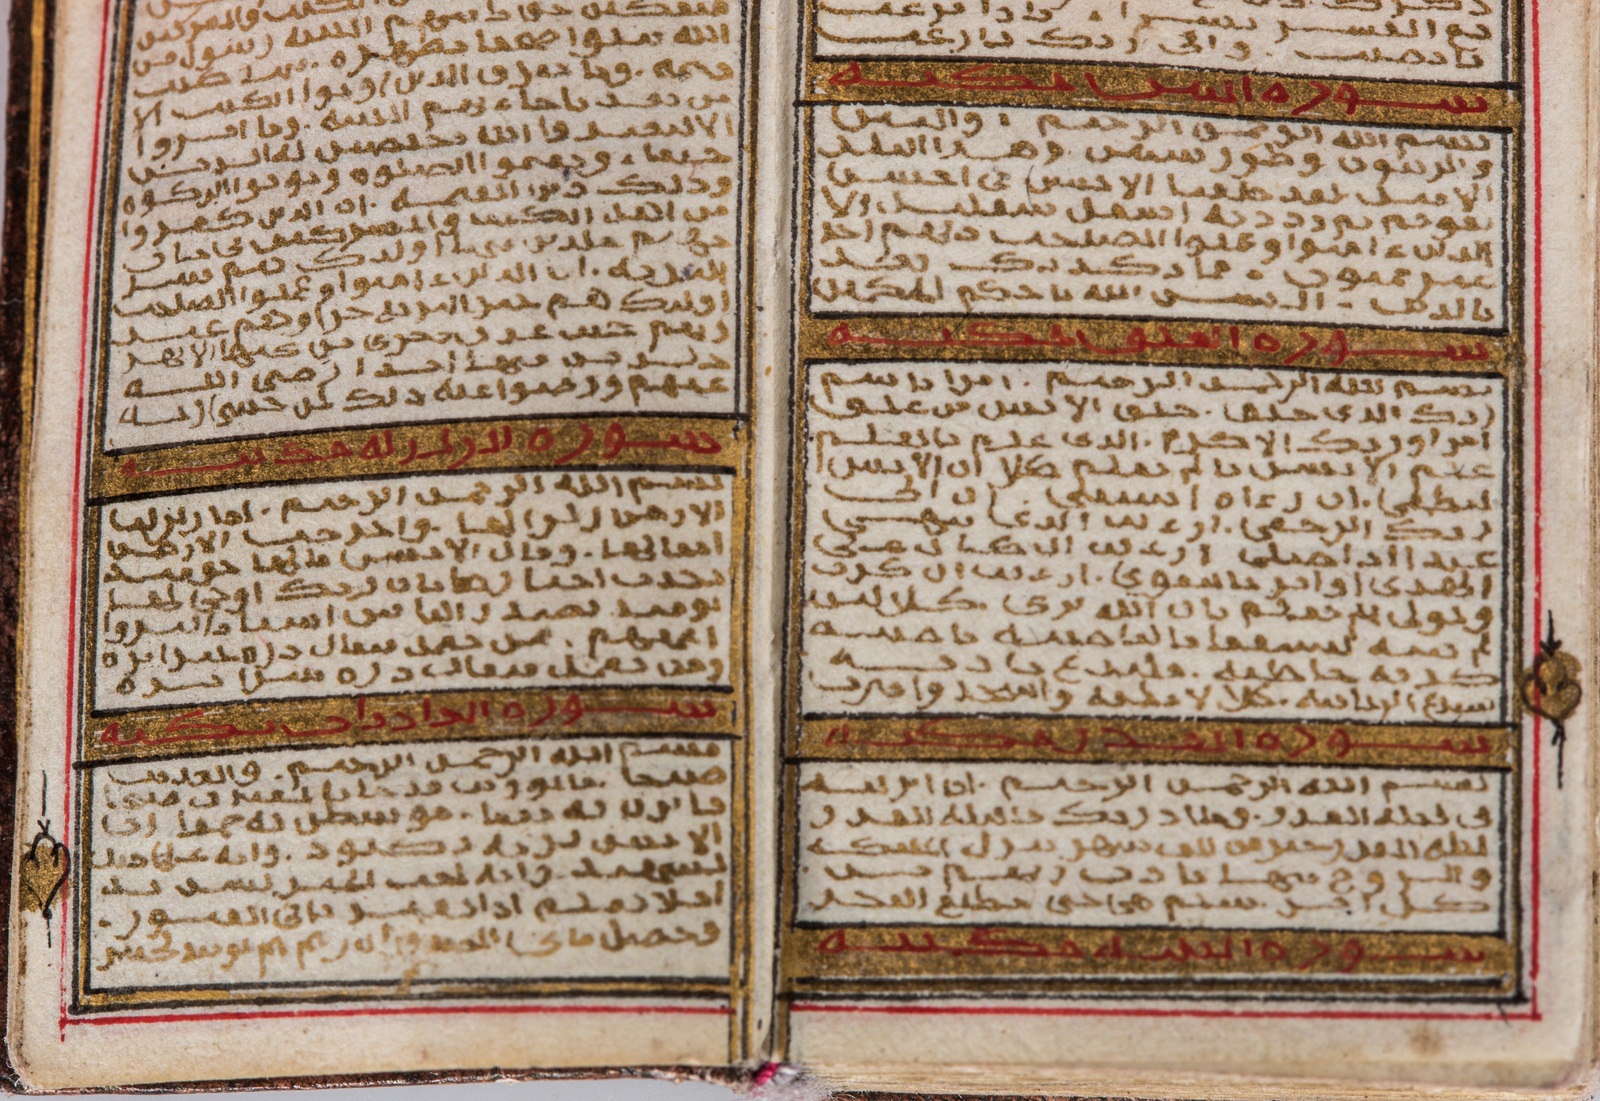 مع العسر يسرا . فاذا فرغت
فانصب . والى ربك فارغب
سورة التين مكية
بسم الله الرحمن الرحيم . والتين
والزيتون وطور سينين وهذا البلد
الامين لقد خلقنا الانسن في احسن
تقويم ثم رددنه اسفل سفلين الا
الذين ءامنوا وعملوا الصلحت فلهم اجر
غير ممنون . فما يكذبك بعد
بالدين . اليس الله باحكم الحكمين
سورة العلق مكية
بسم الله الرحمن الرحيم . اقرا باسم
ربك الذي خلق . خلق الانسن من علق
اقرا وربك الاكرم . الذي علم بالقلم
علم الانسن ما لم يعلم كلا ان الانسن
ليطغى . ان رءاه استغنى . ان الى
ربك الرجعى . ارءيت الذي ينهى
عبدا اذا صلى ارءيت ان كان على
الهدى او امر بالتقوى . ارءيت ان كذب
وتولى الم يعلم بان الله يرى . كلا لئن
لم ينته لنسفعا بالناصية ناصية
كذبة خاطئة . فليدع ناديه
سندع الزبانية . كلا لا تطعه واسجد واقترب
سورة القدر مكية
بسم الله الرحمن الرحيم . انا انزلنه
في ليلة القدر . وما ادريك ما ليلة القدر
ليلة القدر خير من الف شهر تنزل الملئكة
والروح فيها باذن ربهم من
كل امر . سلم هي حتى مطلع الفجر
سورة البينة مكية
منفكين حتى تاتيهم البينة رسول من
الله يتلوا صحفا مطهرة . فيها كتب
قيمة . وما تفرق الذين اوتوا الكتب الا
من بعد ما جاءتهم البينة . وما امروا
الا ليعبدوا الله مخلصين له الدين
حنفاء ويقيموا الصلوة ويوتوا الزكوة
وذلك دين القيمة . ان الذين كفروا
من اهل الكتب والمشركين في نار
جهنم خلدين فيها اولئك هم شر
البرية . ان الذين ءامنوا وعملوا الصلحت
اولئك هم خير البرية جزاوهم عند
ربهم جنت عدن تجري من تحتها الانهر
خلدين فيها ابدا رضي الله
عنهم ورضوا عنه ذلك لمن خشي ربه
سورة الزلزلة مكية
بسم الله الرحمن الرحيم . اذا زلزلت
الارض زلزالها . واخرجت الارض
اثقالها . وقال الانسن مالها يومئذ
تحدث اخبارها بان ربك اوحى لها
يومئذ يصدر الناس اشتاتا ليروا
اعملهم . فمن يعمل مثقال ذرة خيرا يره
ومن يعمل مثقال ذرة شرا يره
سورة العاديات مكية
بسم الله الرحمن الرحيم . والعديت
ضبحا . فالموريت قدحا فالمغيرت صبحا
فاثرن به نقعا . فوسطن به جمعا ان
الانسن لربه لكنود . وانه على ذلك
لشهيد . وانه لحب الخير لشديد
افلا يعلم اذا بعثر ما في القبور .
وحصل ما في الصدور ان ربهم بهم يومئذ لخبير